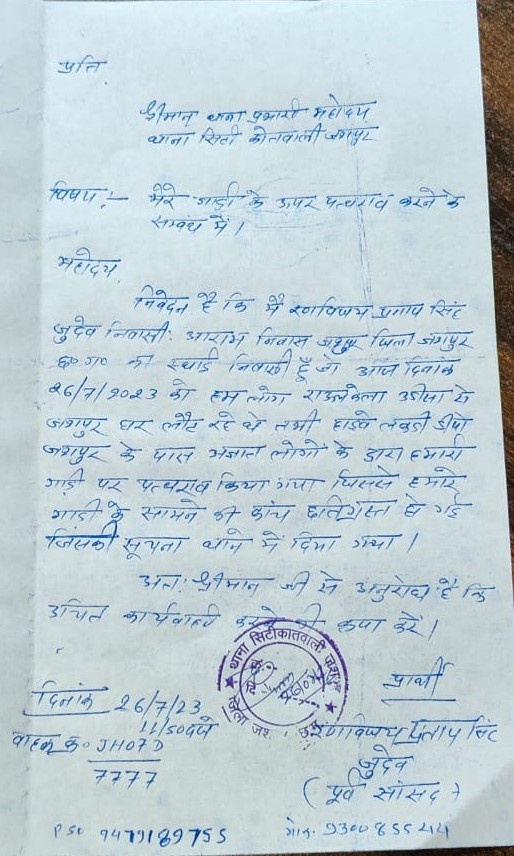 प्रति
श्रीमान् थाना प्रभारी महोदय
थाना सिटी कोतवाली जशपुर
विषय:- मेरे गाड़ी के ऊपर पत्थराव करने के
सम्बंध में।
महोदय,
निवेदन है कि मैं रणविजय प्रताप सिंह
जुदेव निवासी: आराम निवास जशपुर जिला जशपुर
छ०ग० का स्थाई निवासी हूँ जो आज दिनांक
26/7/2023 को हम लोग राऊलकेला उड़ीसा से
जशपुर घर लौट रहे थे तभी हाइवे लकडी डीपो
जशपुर के पास अज्ञात लोगों के द्वारा हमारी
गाड़ी पर पत्थराव किया गया जिससे हमारे
गाडी के सामने की कांच क्षतिग्रस्त हो गई
जिसकी सूचना थाने में दिया गया।
अत: श्रीमान जी से अनुरोध है कि
उचित कार्यवाही करने की कृपा करें।
थाना सिटीकोतवाली जशपुर
जिला जश. छ.ग.
प्रार्थी
दिनांक 26/7/23
11/50 बजे
रणविजय प्रताप सिंह
वाहन क्र० JH07D
7777
जुदेव
(पूर्व सांसद)
PSO 9479189755
मो०न: 9300855244